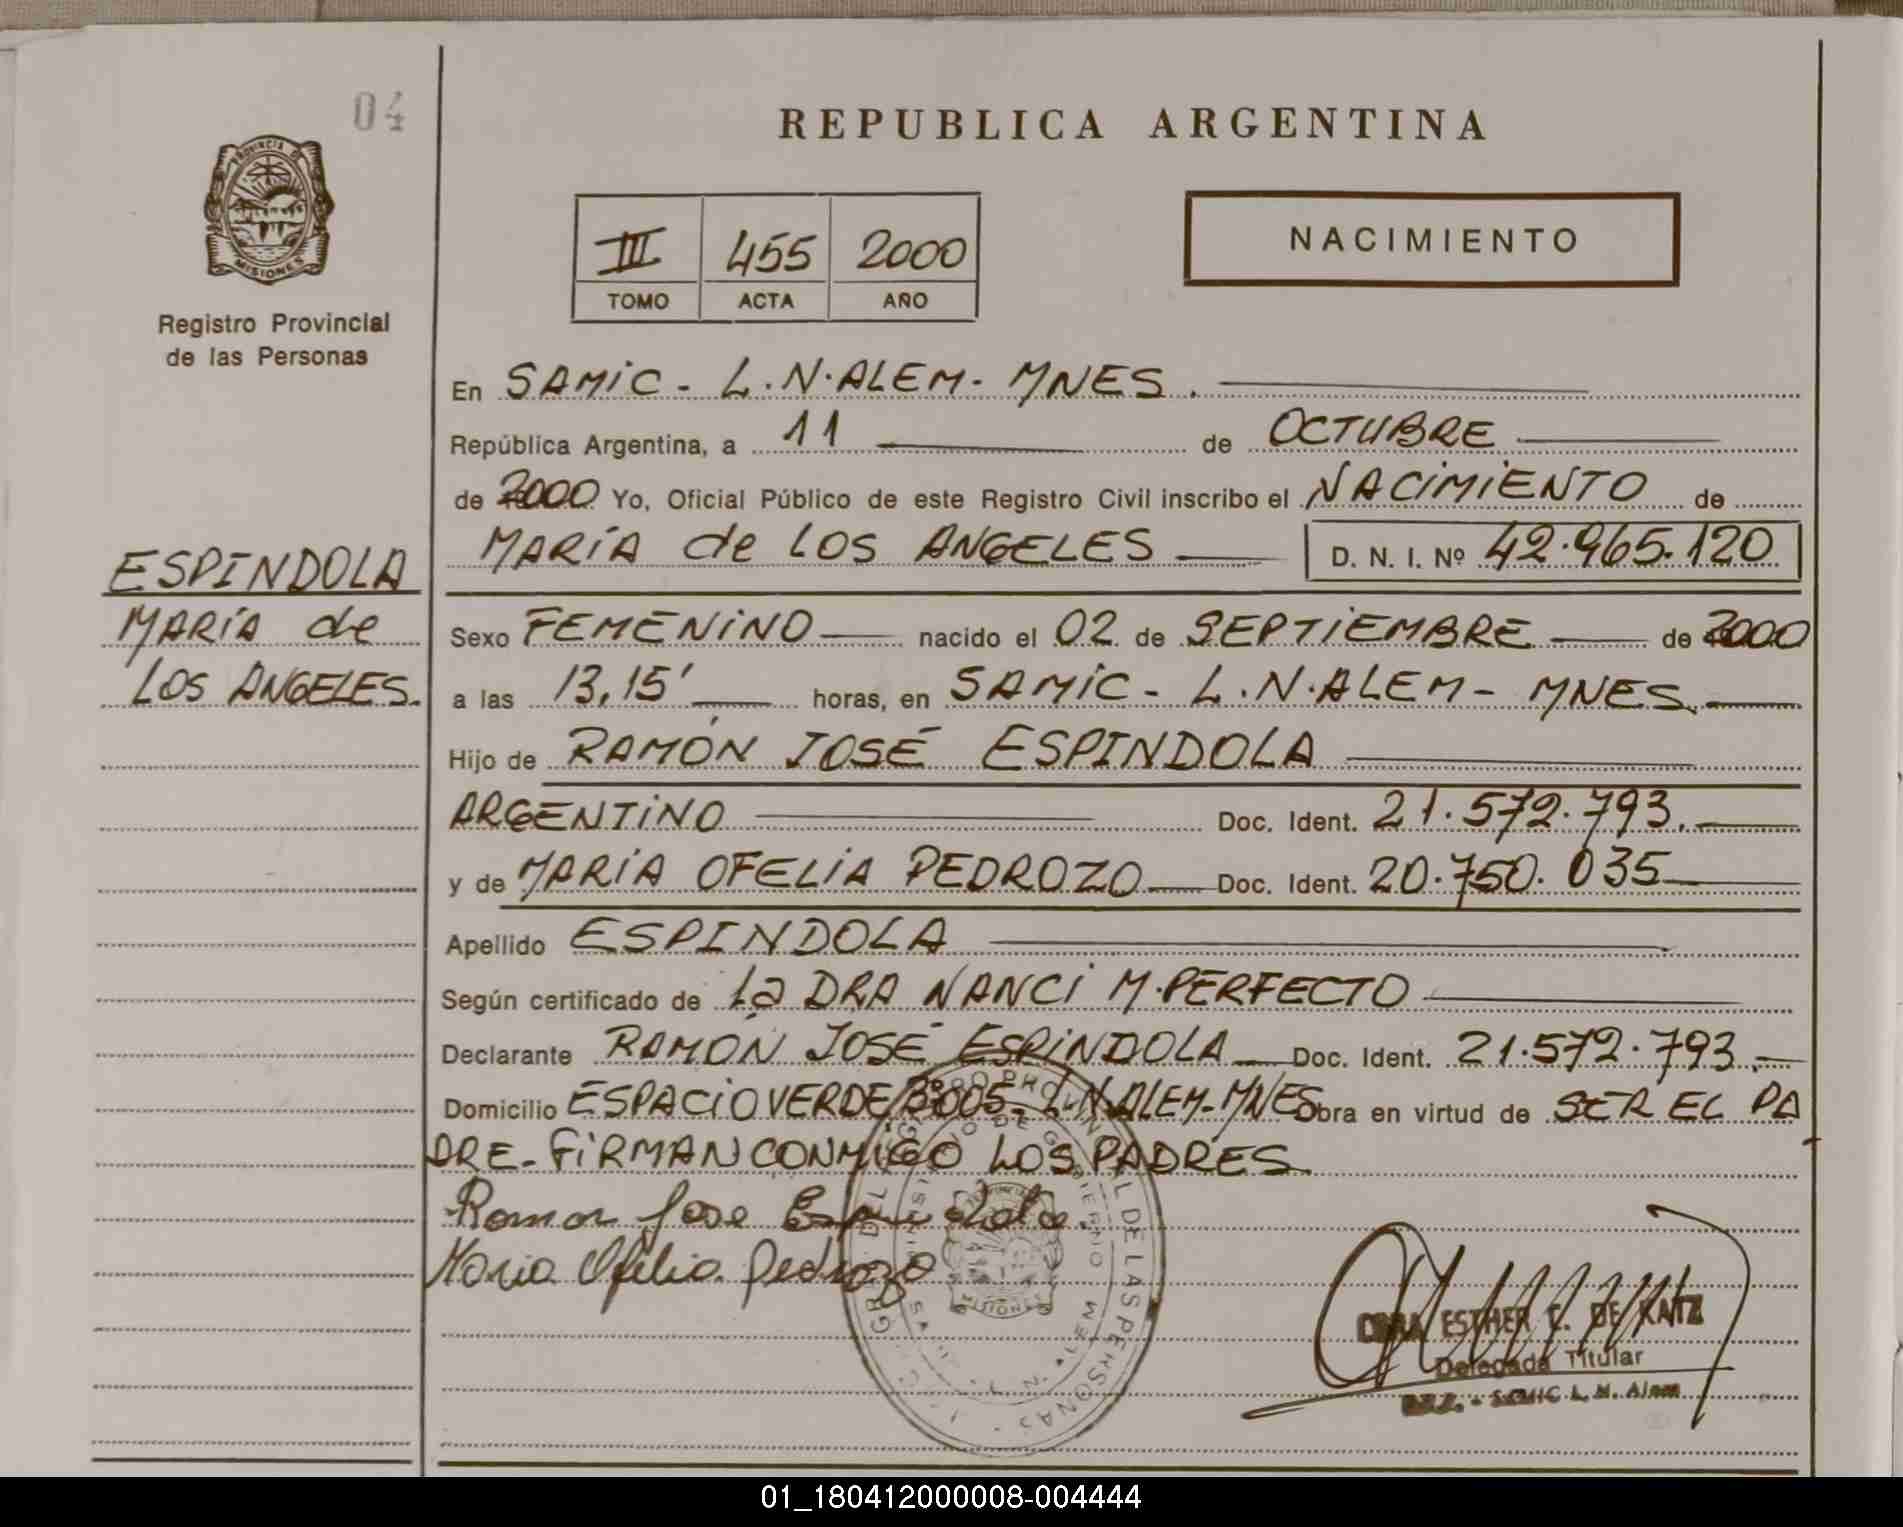 04
PROVINCIA DE
MISIONES
Registro Provincial
de las Personas
REPUBLICA ARGENTINA
III 455 2000
TOMO ACTA AÑO
NACIMIENTO
En SAMIC - L.N.ALEM - MNES.
República Argentina, a 11 de OCTUBRE
de 2000 Yo, Oficial Público de este Registro Civil inscribo el NACIMIENTO de
MARÍA de LOS ANGELES D. N. I. Nº 42.965.120
ESPINDOLA
MARÍA de
LOS ANGELES.
Sexo FEMENINO nacido el 02 de SEPTIEMBRE de 2000
a las 13,15' horas, en SAMIC - L.N.ALEM - MNES.
Hijo de RAMÓN JOSÉ ESPINDOLA
ARGENTINO Doc. Ident. 21.572.793.
y de MARÍA OFELIA PEDROZO Doc. Ident. 20.750.035
Apellido ESPINDOLA
Según certificado de La DRA NANCI M. PERFECTO
Declarante RAMÓN JOSÉ ESPINDOLA Doc. Ident. 21.572.793.
Domicilio ESPACIO VERDE 3005 - L.N.ALEM - MNES Obra en virtud de SER EL PA
DRE - FIRMAN CONMIGO LOS PADRES
Ramon Jose Espindola.
Maria Ofelia Pedrozo
ESTHER DE KATZ
Delegada Titular
SAMIC L. N. Alem
01_180412000008-004444